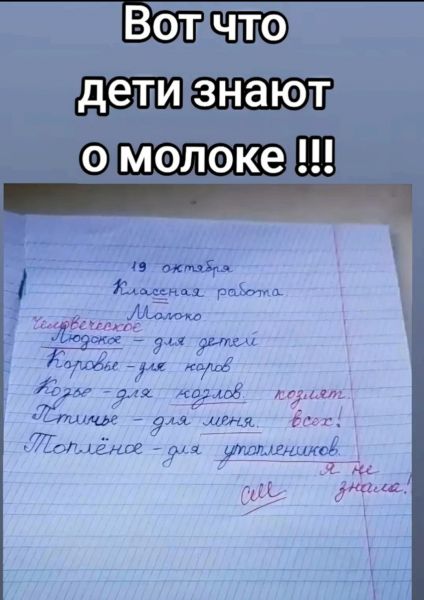 Вот что
дети знают
о молоке !!!
19 октября
Классная работа
Молоко
Человеческое
Людское – для детей
Коровье – для коров
Козье – для козлов. козлят.
Птичье – для меня. всех!
Топлёное – для утоплеников.
я не
знала!
См